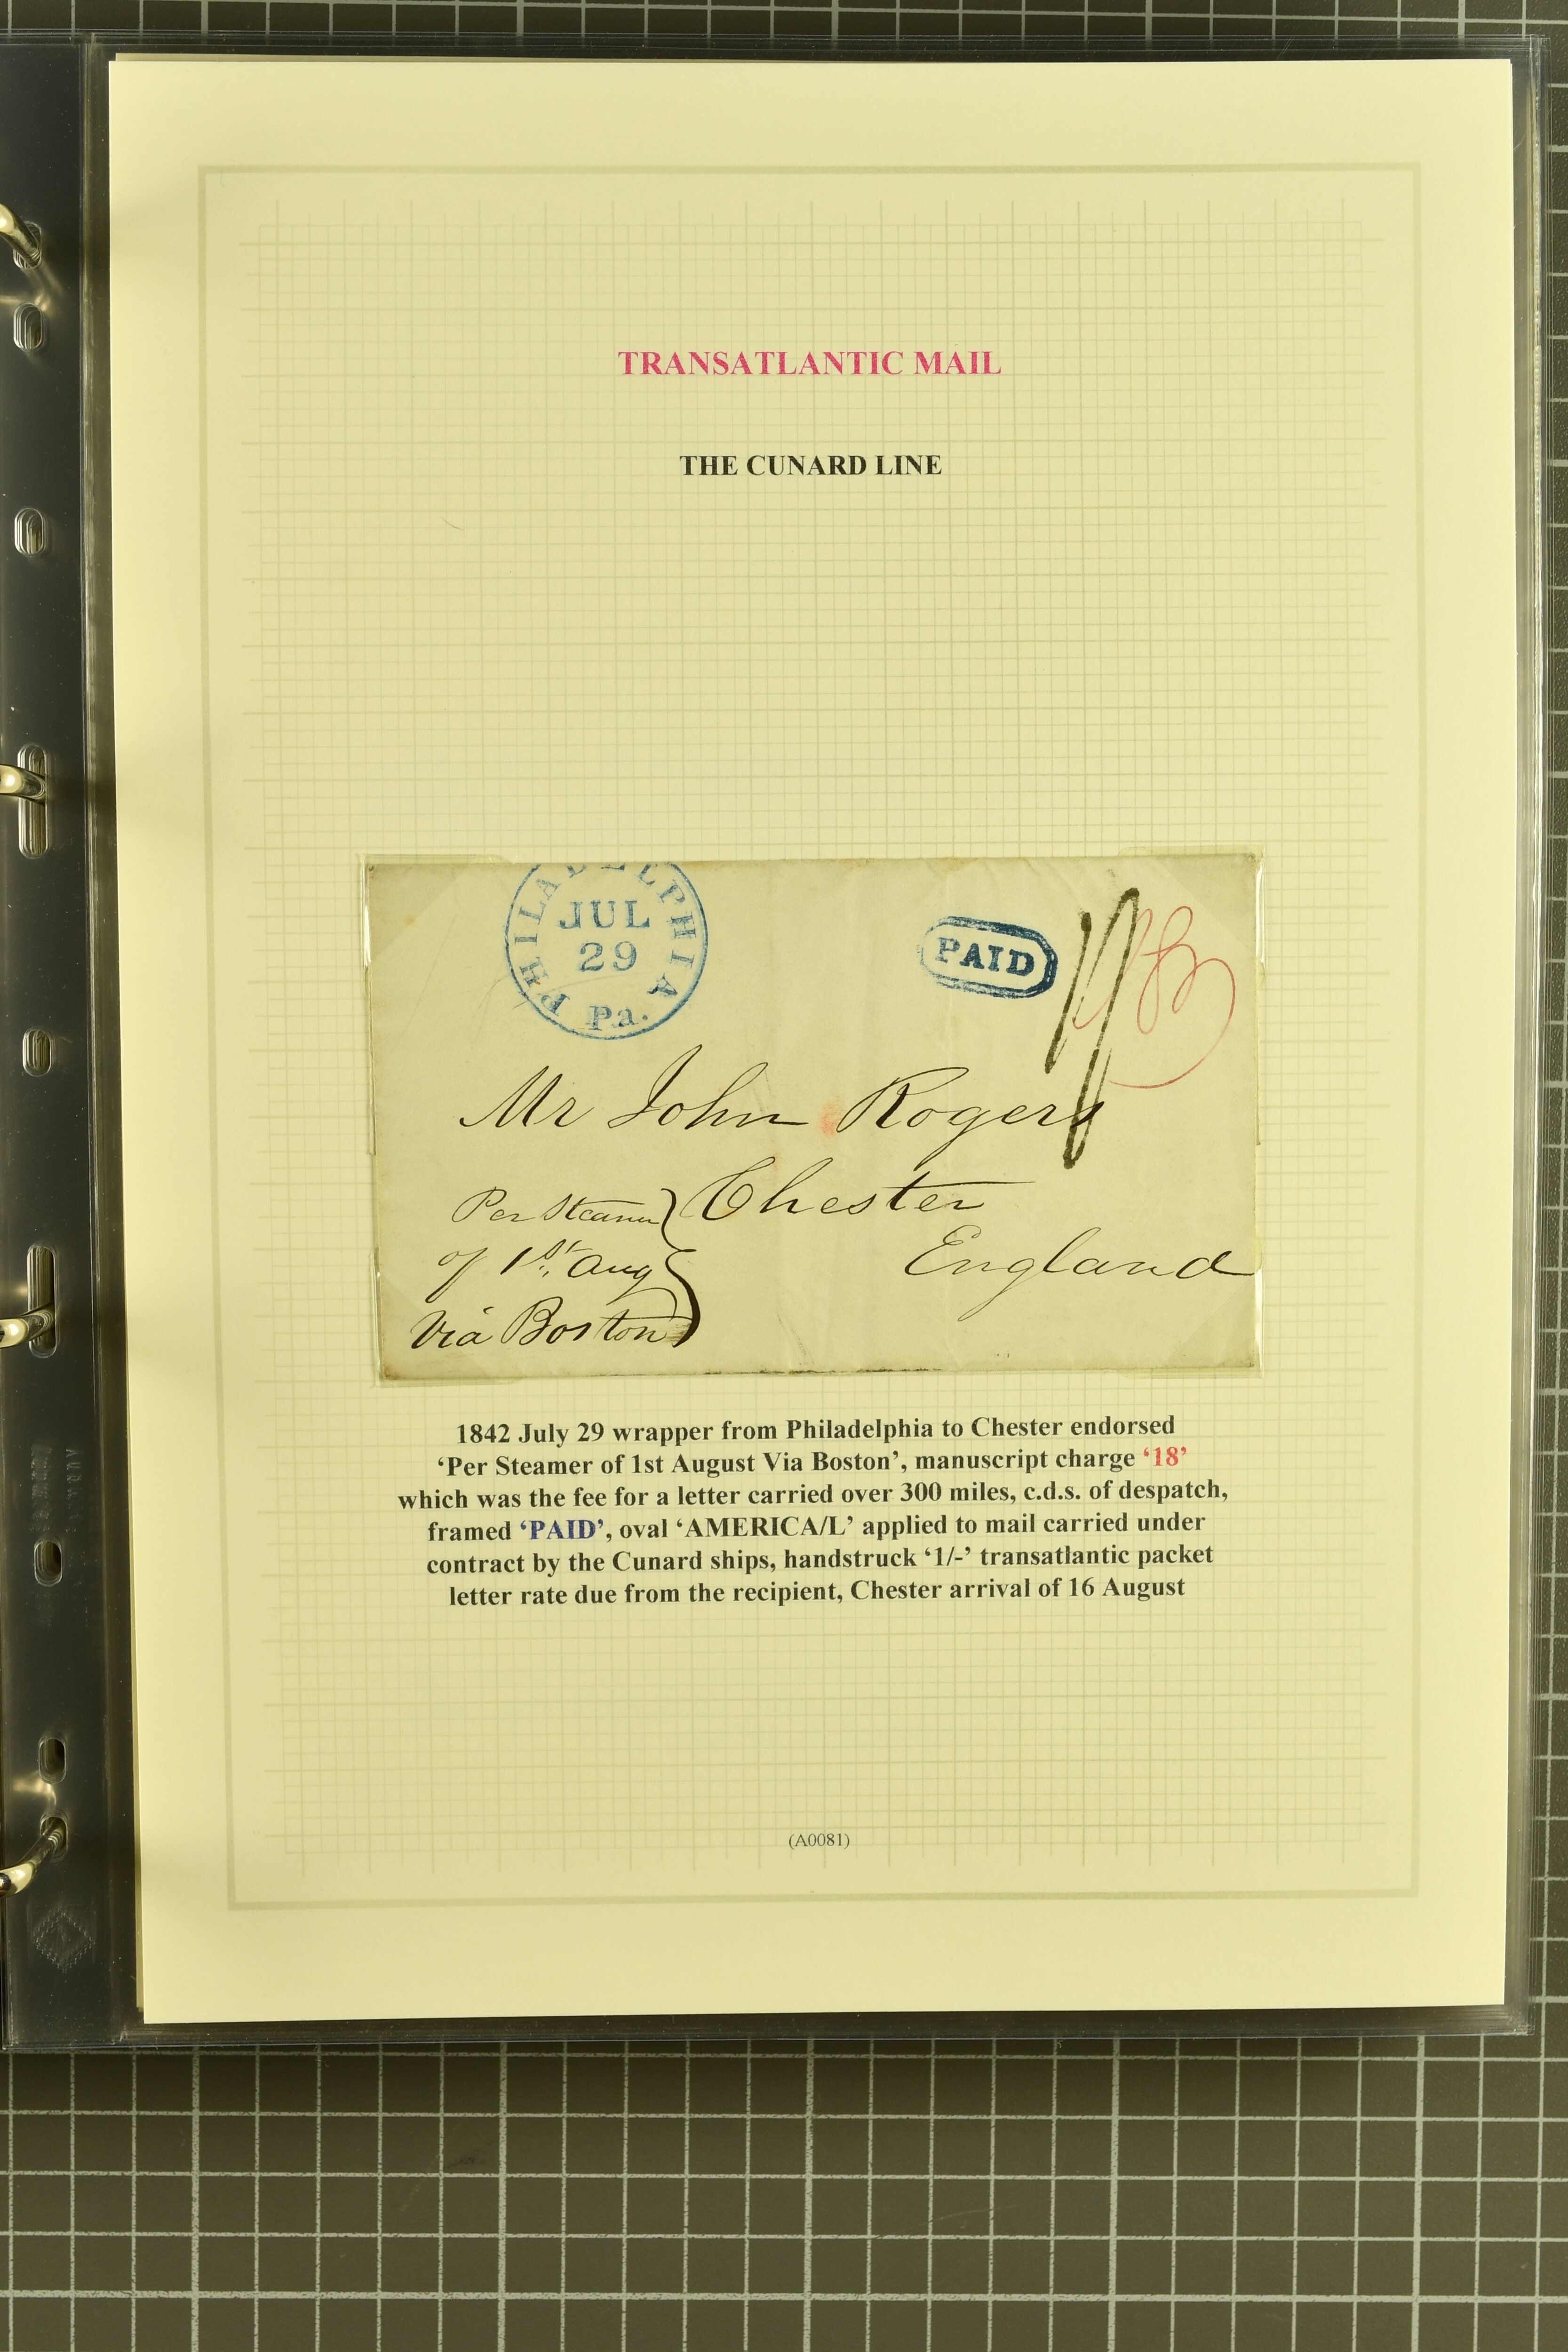 TRANSATLANTIC MAIL
THE CUNARD LINE
PHILADELPHIA Pa.
JUL
29
PAID
1/
18
Mr John Rogers
Chester
England
Per Steamer
of 1st Aug
Via Boston
1842 July 29 wrapper from Philadelphia to Chester endorsed
‘Per Steamer of 1st August Via Boston’, manuscript charge ‘18’
which was the fee for a letter carried over 300 miles, c.d.s. of despatch,
framed ‘PAID’, oval ‘AMERICA/L’ applied to mail carried under
contract by the Cunard ships, handstruck ‘1/-’ transatlantic packet
letter rate due from the recipient, Chester arrival of 16 August
(A0081)